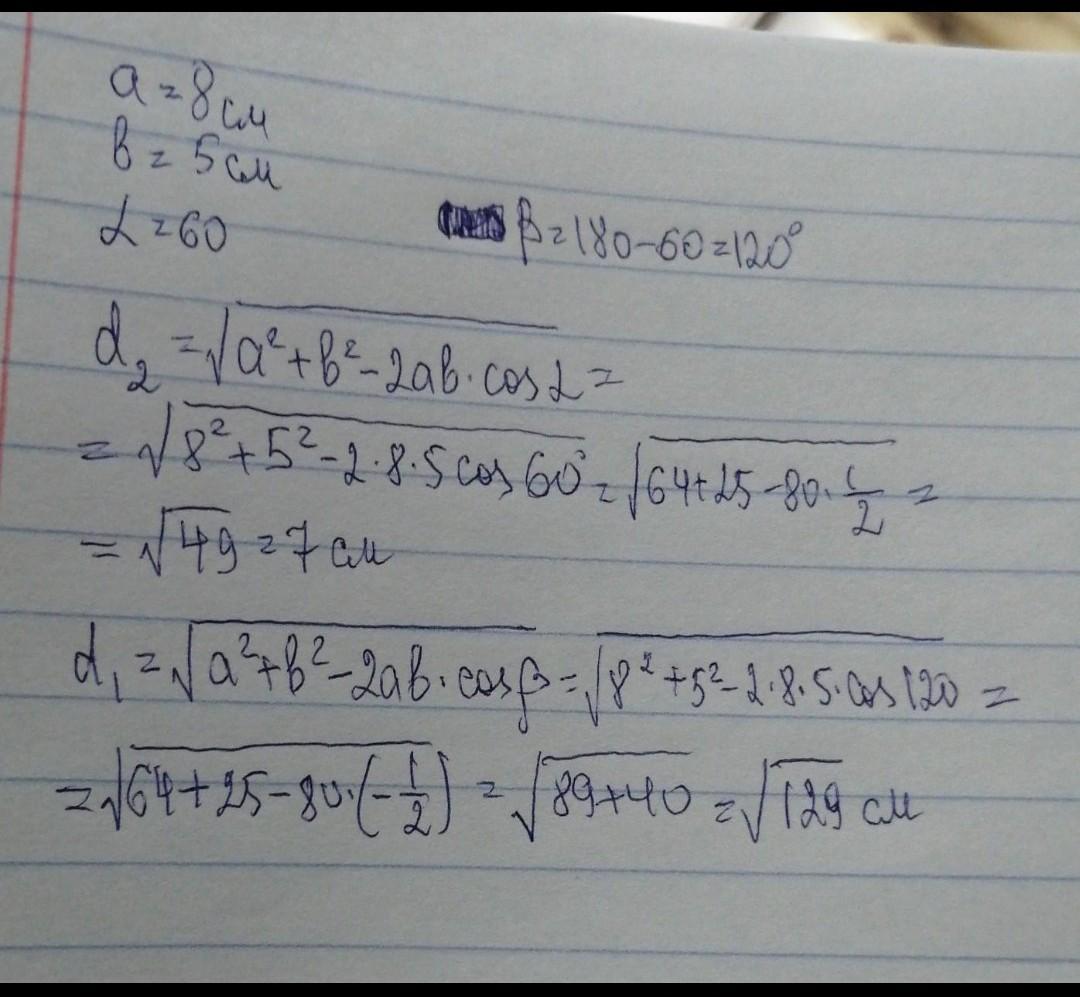 a = 8 см
в = 5 см
α = 60
β = 180 - 60 = 120°
d₂ = √a² + в² - 2ав · cos α =
= √8² + 5² - 2 · 8 · 5 cos 60° = √64 + 25 - 80 · 1/2 =
= √49 = 7 см
d₁ = √a² + в² - 2ав · cos β = √8² + 5² - 2 · 8 · 5 · cos 120 =
= √64 + 25 - 80 · (-1/2) = √89 + 40 = √129 см